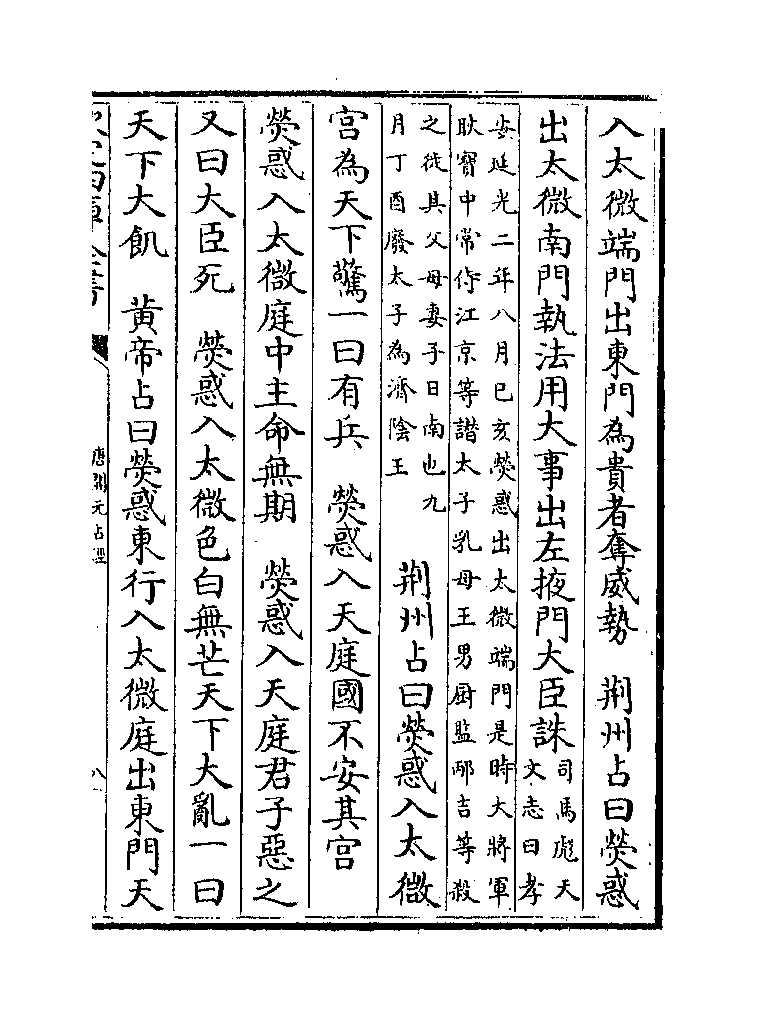 入太微端門出東門為貴者奪威勢　荆州占曰熒惑
出太微南門執法用大事出左掖門大臣誅司馬彪天
文志曰孝
安延光二年八月己亥熒惑出太微端門是時大將軍
耿寳中常侍江京等譛太子乳母王男厨監邴吉等殺
之徙其父母妻子日南也九
月丁酉廢太子為濟陰王
荆州占曰熒惑入太微
宫為天下驚一曰有兵　熒惑入天庭國不安其宫
熒惑入太微庭中主命無期　熒惑入天庭君子惡之
又曰大臣死　熒惑入太微色白無芒天下大亂一曰
天下大飢　黄帝占曰熒惑東行入太微庭出東門天
唐開元占經
八